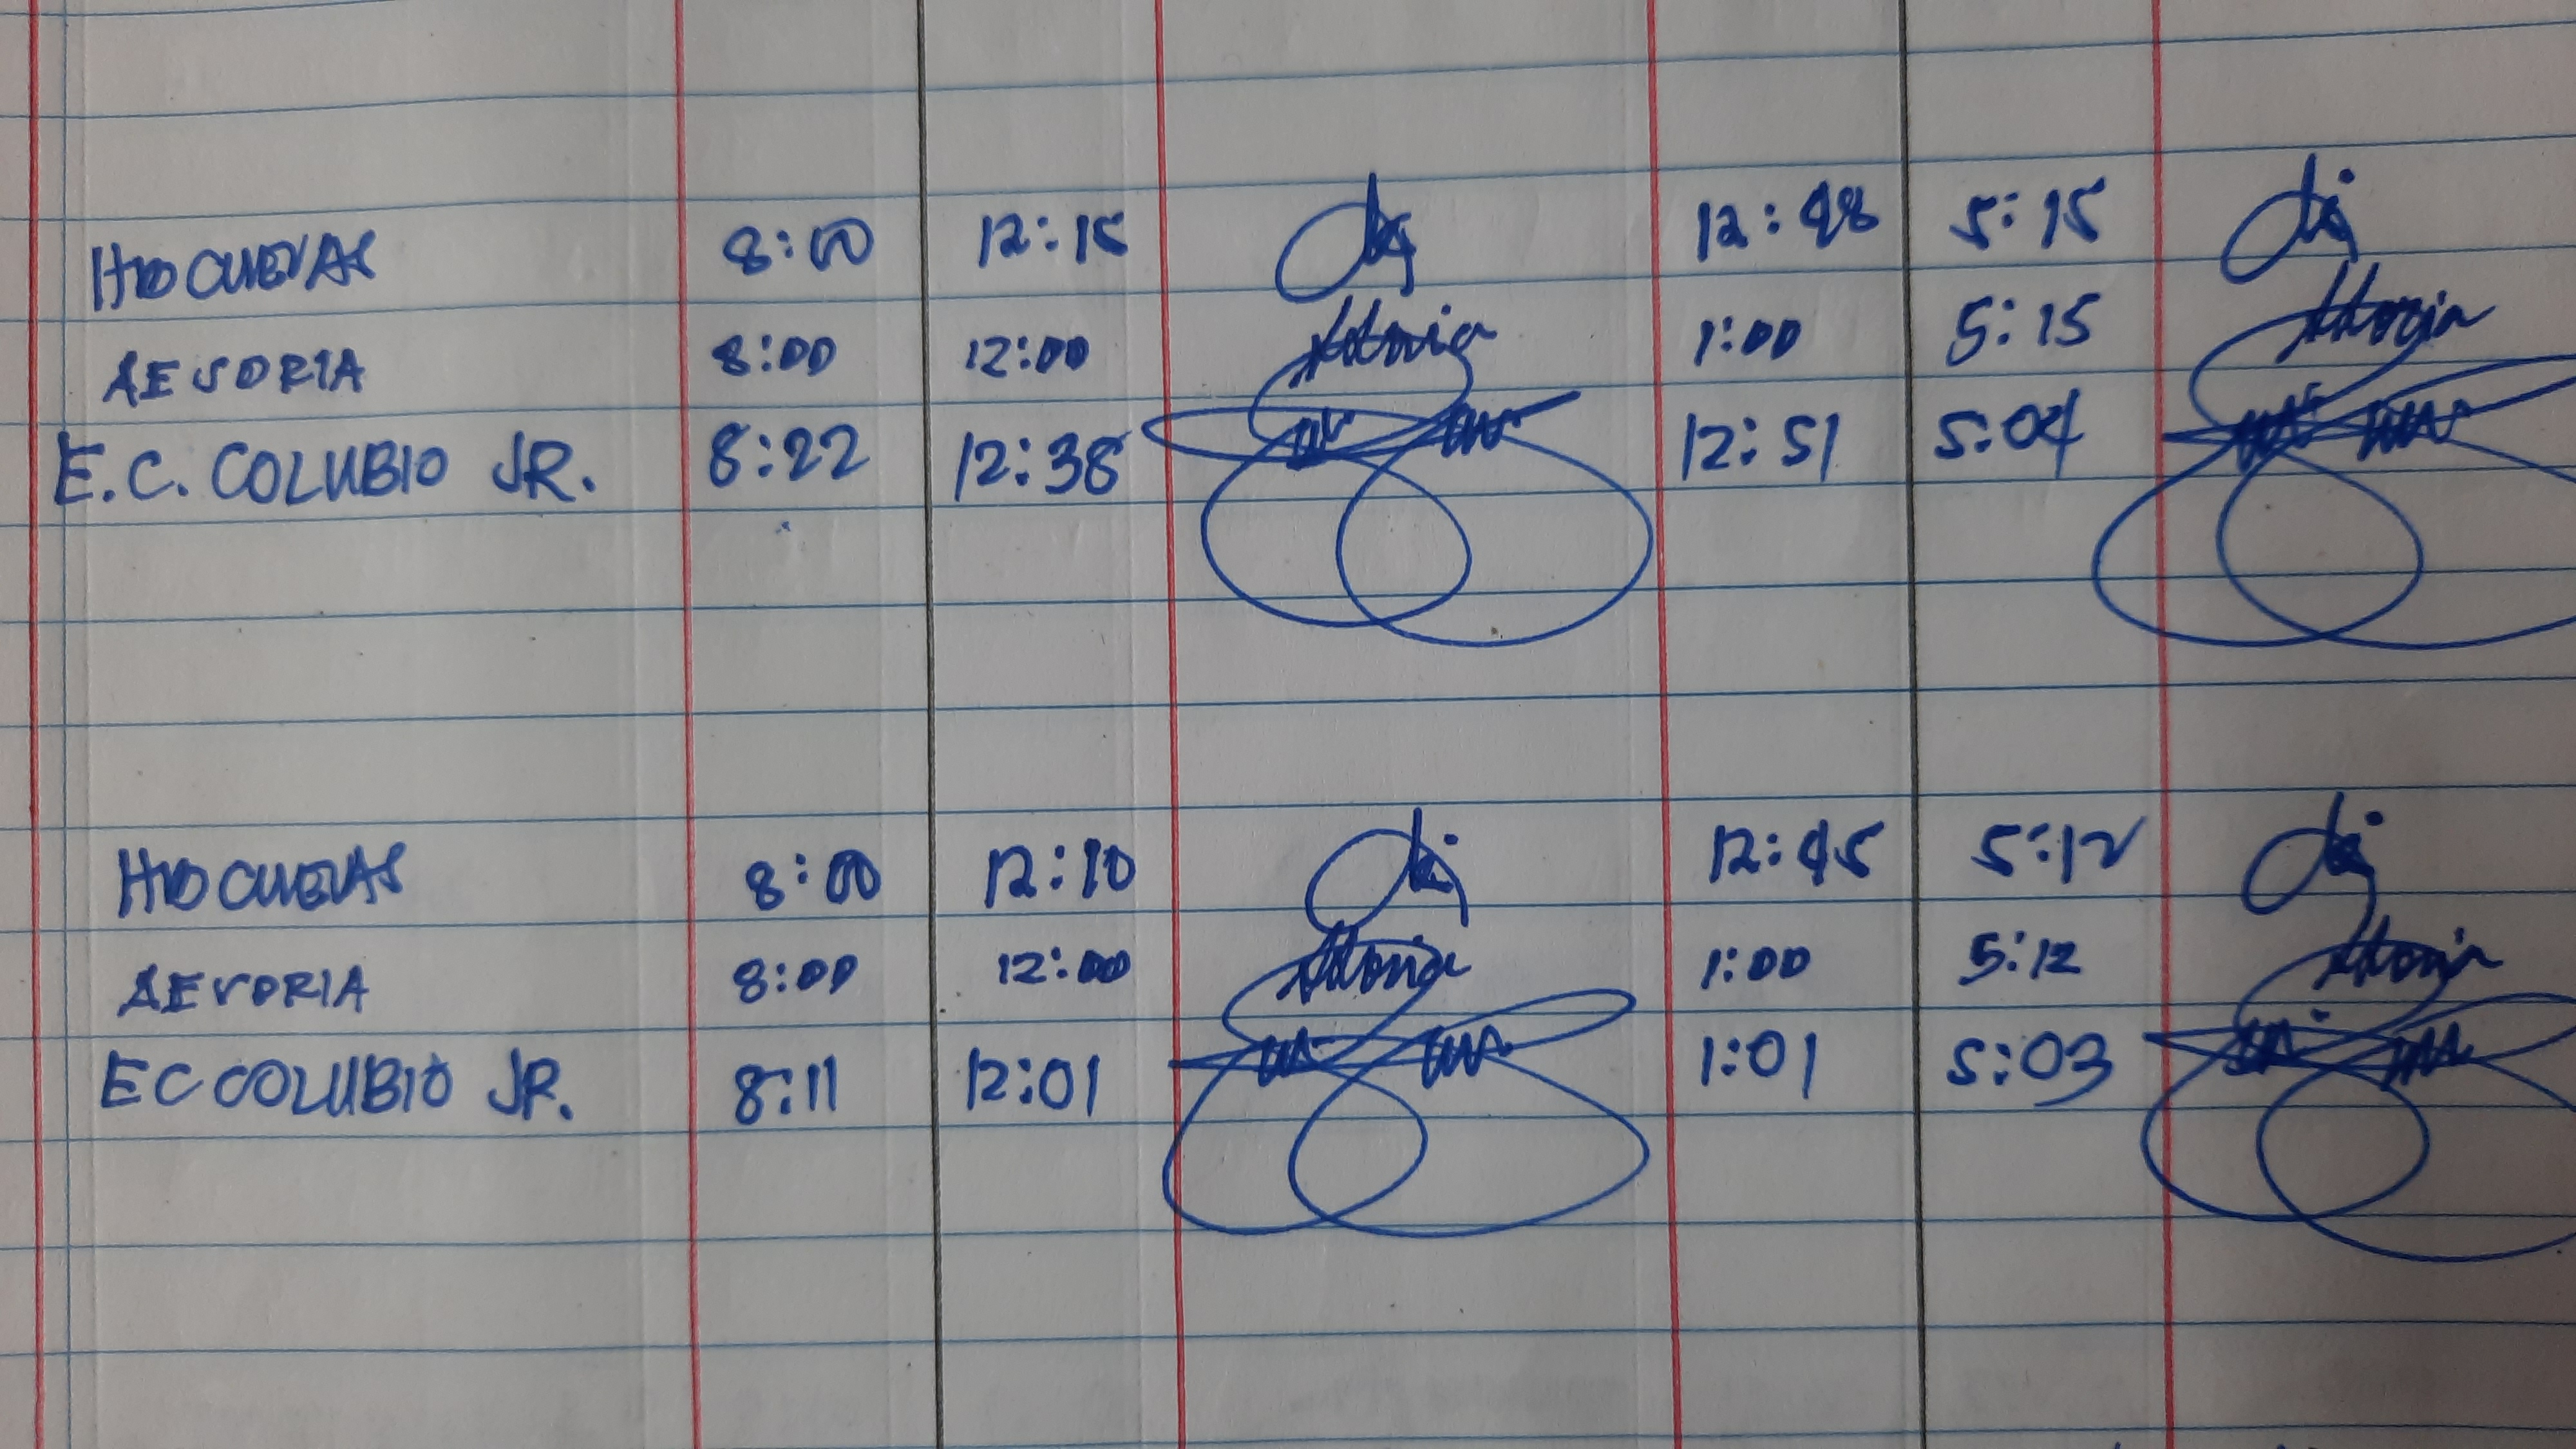 HVO CUEVAS 8:00 12:15 12:48 5:15
AESORIA 8:00 12:00 1:00 5:15
E.C. COLUBIO JR. 8:22 12:38 12:51 5:04
HVO CUEVAS 8:00 12:10 12:45 5:12
AESORIA 8:00 12:00 1:00 5:12
EC COLUBIO JR. 8:11 12:01 1:01 5:03